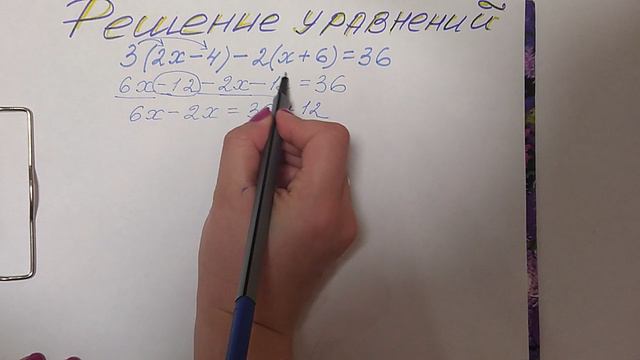 Решение уравнений
3(2x-4)-2(x+6)=36
6x-12-2x-1 =36
6x-2x=3 12